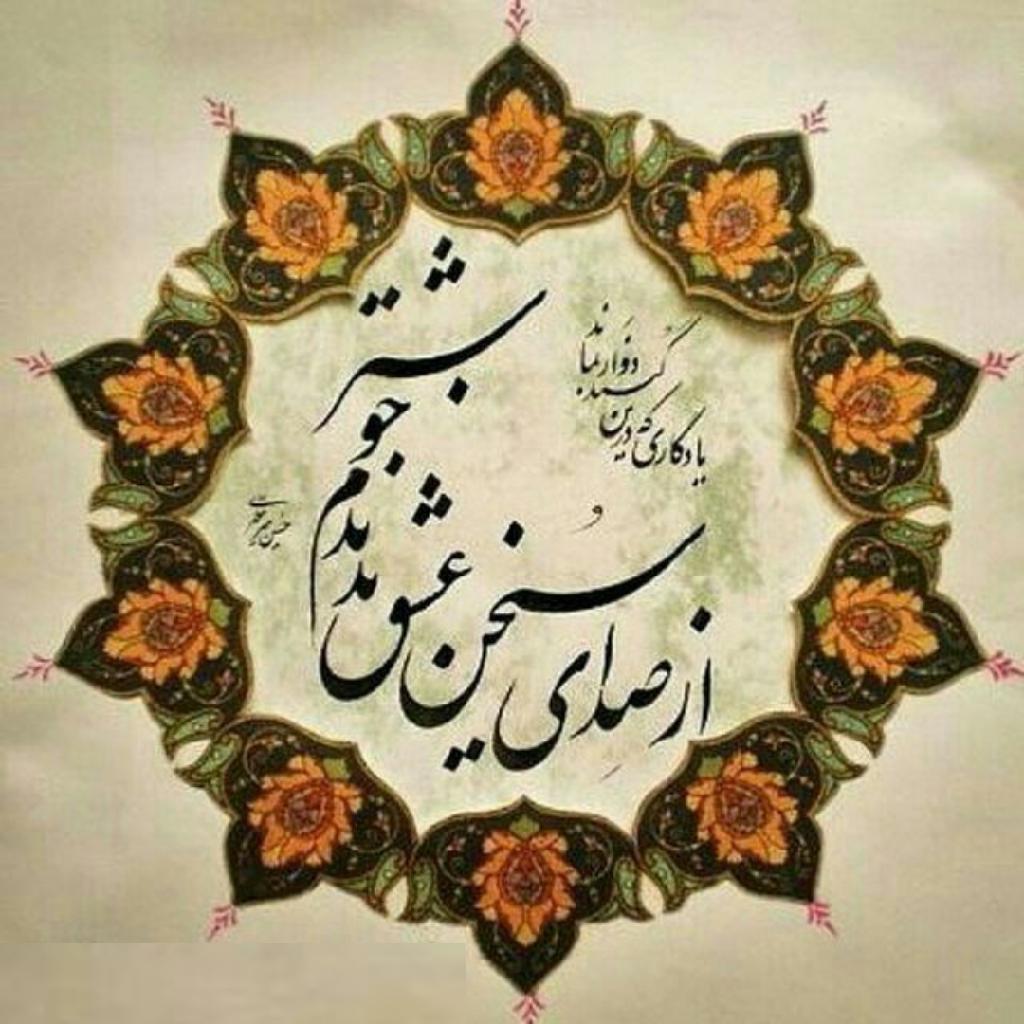 از صدای سخن عشق ندیدم خوشتر
یادگاری که درین گنبد دوّار بماند